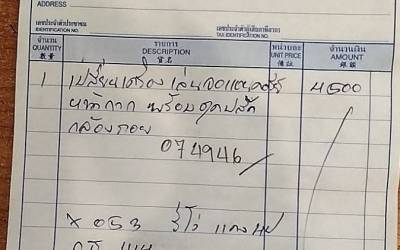 ADDRESS
เลขประจำตัวประชาชน
IDENTIFICATION NO.
เลขประจำตัวผู้เสียภาษีอากร
TAX IDENTIFICATION NO.
จำนวน รายการ หน่วยละ จำนวนเงิน
QUANTITY DESCRIPTION UNIT PRICE AMOUNT
數量 貨名 價銀 銀額
1 เปลี่ยนเครื่องเล่นจอแอนดรอย 4500
หน้ากาก พร้อมชุดปลั๊ก
กล้องถอย
074946
x 053